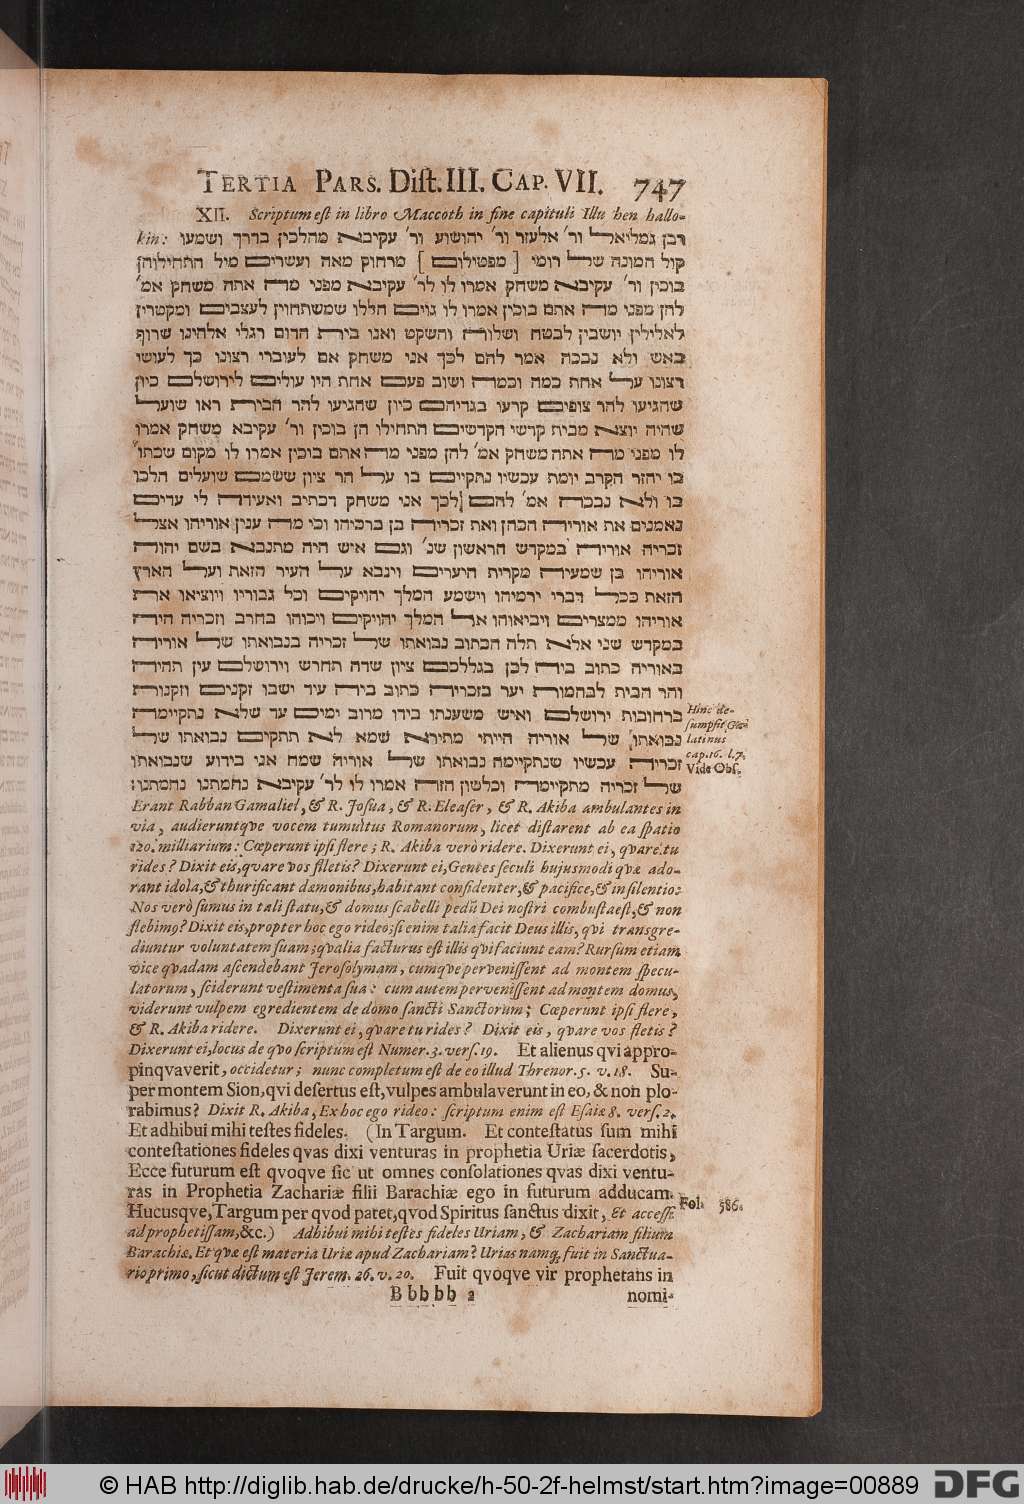 TERTIA PARS. Dist. III. CAP. VII. 747
XII. Scriptum est in libro Maccoth in fine capituli Illu hen hallo-
kin: רבן גמליאל ור׳ אלעזר ור׳ יהושוע ור׳ עקיבא מהלכין בדרך ושמעו
קול המונה של רומי [ מפטילום ] מרחוק מאה ועשרים מיל התחילוהן
בוכין ור׳ עקיבא משחק אמרו לו לר׳ עקיבא מפני מה אתה משחק אמ׳
להן מפני מה אתם בוכין אמרו לו גוים הללו שמשתחוין לעצבים ומקטרין
לאלילין יושבין לבטח ושלוה והשקט ואנו בית הדום רגלי אלהינו שרוף
באש ולא נבכה אמר להם לכך אני משחק אם לעוברי רצונו כך לעושי
רצונו על אחת כמה וכמה ושוב פעם אחת היו עולים לירושלם כיון
שהגיעו להר צופים קרעו בגדיהם כיון שהגיעו להר הבית ראו שועל
שהיה יוצא מבית קדשי הקדשים התחילו הן בוכין ור׳ עקיבא משחק אמרו
לו מפני מה אתה משחק אמ׳ להן מפני מה אתם בוכין אמרו לו מקום שכתו׳
בו והזר הקרב יומת עכשיו נתקיים בו על הר ציון ששמם שועלים הלכו
בו ולא נבכה אמ׳ להם לכך אני משחק דכתיב ואעידה לי עדים
נאמנים את אוריה הכהן ואת זכריה בן ברכיהו וכי מה ענין אוריהו אצל
זכריה אוריה במקדש הראשון שנ׳ וגם איש היה מתנבא בשם יהוה
אוריהו בן שמעיה מקרית היערים וינבא על העיר הזאת ועל הארץ
הזאת ככל דברי ירמיהו וישמע המלך יהויקים וכל גבוריו ויוציאו את
אוריהו ממצרים ויביאוהו אל המלך יהויקים ויכוהו בחרב וזכריה היה
במקדש שני אלא תלה הכתוב נבואתו של זכריה בנבואתו של אוריה
באוריה כתוב ביה לכן בגללכם ציון שדה תחרש וירושלם עין תהיה
והר הבית לבהמות יער בזכריה כתוב ביה עיד ישבו זקנים וזקנות
ברחובות ירושלם ואיש משענתו בידו מרוב ימים עד שלא נתקיימה
נבואתו של אוריה הייתי מתירא שמא לא תתקים נבואתו של
זכריה עכשיו שנתקיימה נבואתו של אוריה שמח אני בידוע שנבואתו
של זכריה מתקיימה ובלשון הזה אמרו לו לר׳ עקיבא נחמתנו נחמתנו:
Hinc de-
sumpsit Ga-
latinus
cap. 16. l. 7.
Vide Obs.
Erant Rabban Gamaliel, & R. Josua, & R. Eleaser, & R. Akiba ambulantes in
via, audieruntqve vocem tumultus Romanorum, licet distarent ab ea spatio
120. milliarium: Cœperunt ipsi flere; R. Akiba verò ridere. Dixerunt ei, qvare tu
rides? Dixit eis, qvare vos filetis? Dixerunt ei, Gentes seculi hujusmodi qvæ ado-
rant idola, & thurificant dæmonibus, habitant confidenter, & pacifice, & in silentio:
Nos verò sumus in tali statu, & domus scabelli pedũ Dei nostri combusta est, & non
flebimꝰ? Dixit eis, propter hoc ego rideo; si enim talia facit Deus illis, qvi transgre-
diuntur voluntatem suam; qvalia facturus est illis qvi faciunt eam? Rursum etiam
vice qvadam ascendebant Jerosolymam, cumqve pervenissent ad montem specu-
latorum, sciderunt vestimenta sua: cum autem pervenissent ad montem domus,
viderunt vulpem egredientem de domo sancti Sanctorum; Cœperunt ipsi flere,
& R. Akiba ridere. Dixerunt ei, qvare tu rides? Dixit eis, qvare vos fletis?
Dixerunt ei, locus de qvo scriptum est Numer. 3. vers. 19. Et alienus qvi appro-
pinqvaverit, occidetur; nunc completum est de eo illud Threnor. 5. v. 18. Su-
per montem Sion, qvi desertus est, vulpes ambulaverunt in eo, & non plo-
rabimus? Dixit R. Akiba, Ex hoc ego rideo: scriptum enim est Esaiæ 8. vers. 2.
Et adhibui mihi testes fideles. (In Targum. Et contestatus sum mihi
contestationes fideles qvas dixi venturas in prophetia Uriæ sacerdotis,
Ecce futurum est qvoqve sic ut omnes consolationes qvas dixi ventu-
ras in Prophetia Zachariæ filii Barachiæ ego in futurum adducam.
Hucusqve, Targum per qvod patet, qvod Spiritus sanctus dixit, Et accessi
Fol. 586.
ad prophetissam, &c.) Adhibui mihi testes fideles Uriam, & Zachariam filium
Barachiæ. Et qvæ est materia Uriæ apud Zachariam? Urias namq; fuit in Sanctua-
rio primo, sicut dictum est Jerem. 26. v. 20. Fuit qvoqve vir prophetans in
B bbbb 2 nomi-
© HAB http://diglib.hab.de/drucke/h-50-2f-helmst/start.htm?image=00889 DFG